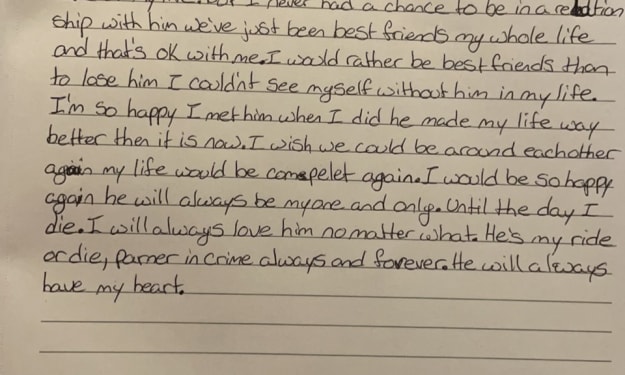 I never had a chance to be in a relation
ship with him we've just been best friends my whole life
and that's ok with me. I would rather be best friends than
to lose him I couldn't see myself without him in my life.
I'm so happy I met him when I did he made my life way
better then it is now. I wish we could be around eachother
again my life would be comepelet again. I would be so happy
again he will always be my one and only. Until the day I
die. I will always love him no matter what. He's my ride
or die, parner in crime always and forever. He will always
have my heart.